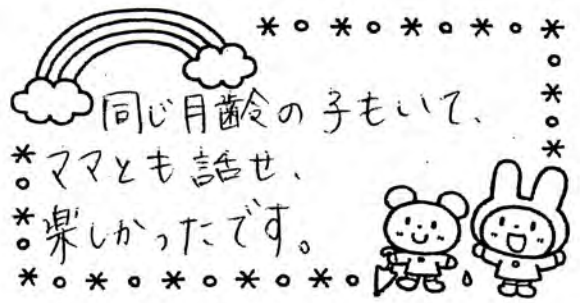 同じ月齢の子もいて、
ママとも話せ、
楽しかったです。